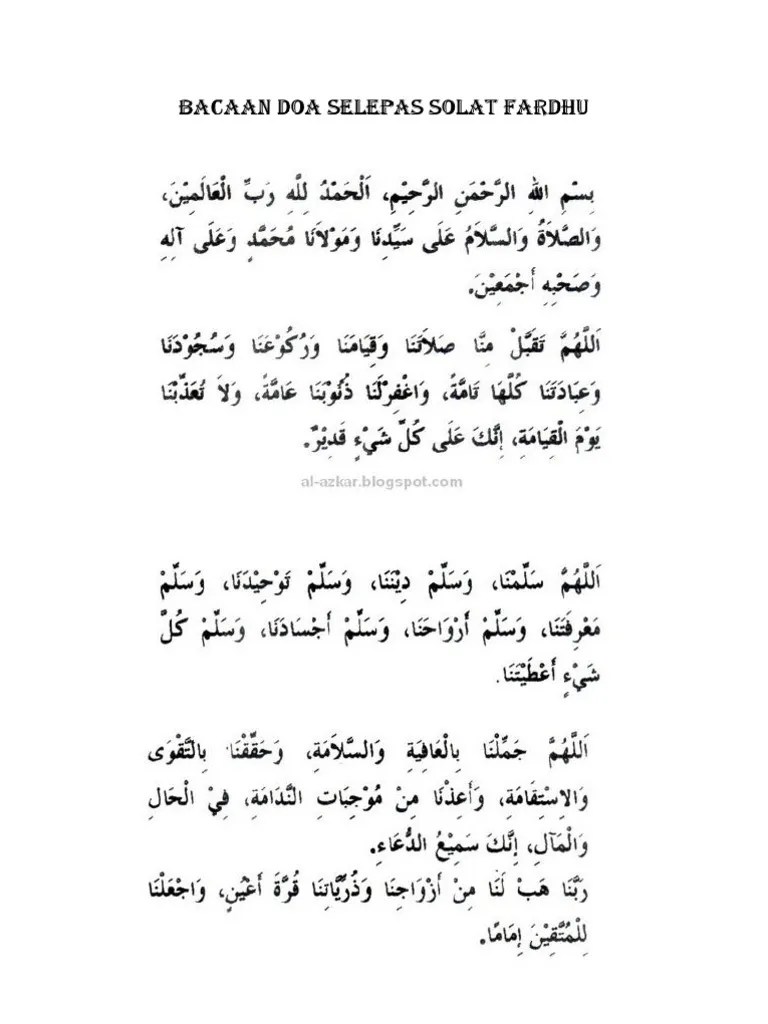 BACAAN DOA SELEPAS SOLAT FARDHU
بِسْمِ اللهِ الرَّحْمَنِ الرَّحِيْمِ، اَلْحَمْدُ لِلَّهِ رَبِّ الْعَالَمِيْنَ،
وَالصَّلَاةُ وَالسَّلَامُ عَلَى سَيِّدِنَا وَمَوْلَانَا مُحَمَّدٍ وَعَلَى آلِهِ
وَصَحْبِهِ أَجْمَعِيْنَ.
اَللَّهُمَّ تَقَبَّلْ مِنَّا صَلَاتَنَا وَقِيَامَنَا وَرُكُوْعَنَا وَسُجُوْدَنَا
وَعِبَادَتَنَا كُلَّهَا تَامَّةً، وَاغْفِرْلَنَا ذُنُوْبَنَا عَامَّةً، وَلَا تُعَذِّبْنَا
يَوْمَ الْقِيَامَةِ، إِنَّكَ عَلَى كُلِّ شَيْءٍ قَدِيْرٌ.
al-azkar.blogspot.com
اَللَّهُمَّ سَلِّمْنَا، وَسَلِّمْ دِيْنَنَا، وَسَلِّمْ تَوْحِيْدَنَا، وَسَلِّمْ
مَعْرِفَتَنَا، وَسَلِّمْ أَرْوَاحَنَا، وَسَلِّمْ أَجْسَادَنَا، وَسَلِّمْ كُلَّ
شَيْءٍ أَعْطَيْتَنَا.
اَللَّهُمَّ جَمِّلْنَا بِالْعَافِيَةِ وَالسَّلَامَةِ، وَحَقِّقْنَا بِالتَّقْوَى
وَالِاسْتِقَامَةِ، وَأَعِذْنَا مِنْ مُوْجِبَاتِ النَّدَامَةِ، فِيْ الْحَالِ
وَالْمَآلِ، إِنَّكَ سَمِيْعُ الدُّعَاءِ.
رَبَّنَا هَبْ لَنَا مِنْ أَزْوَاجِنَا وَذُرِّيَّاتِنَا قُرَّةَ أَعْيُنٍ، وَاجْعَلْنَا
لِلْمُتَّقِيْنَ إِمَامًا.